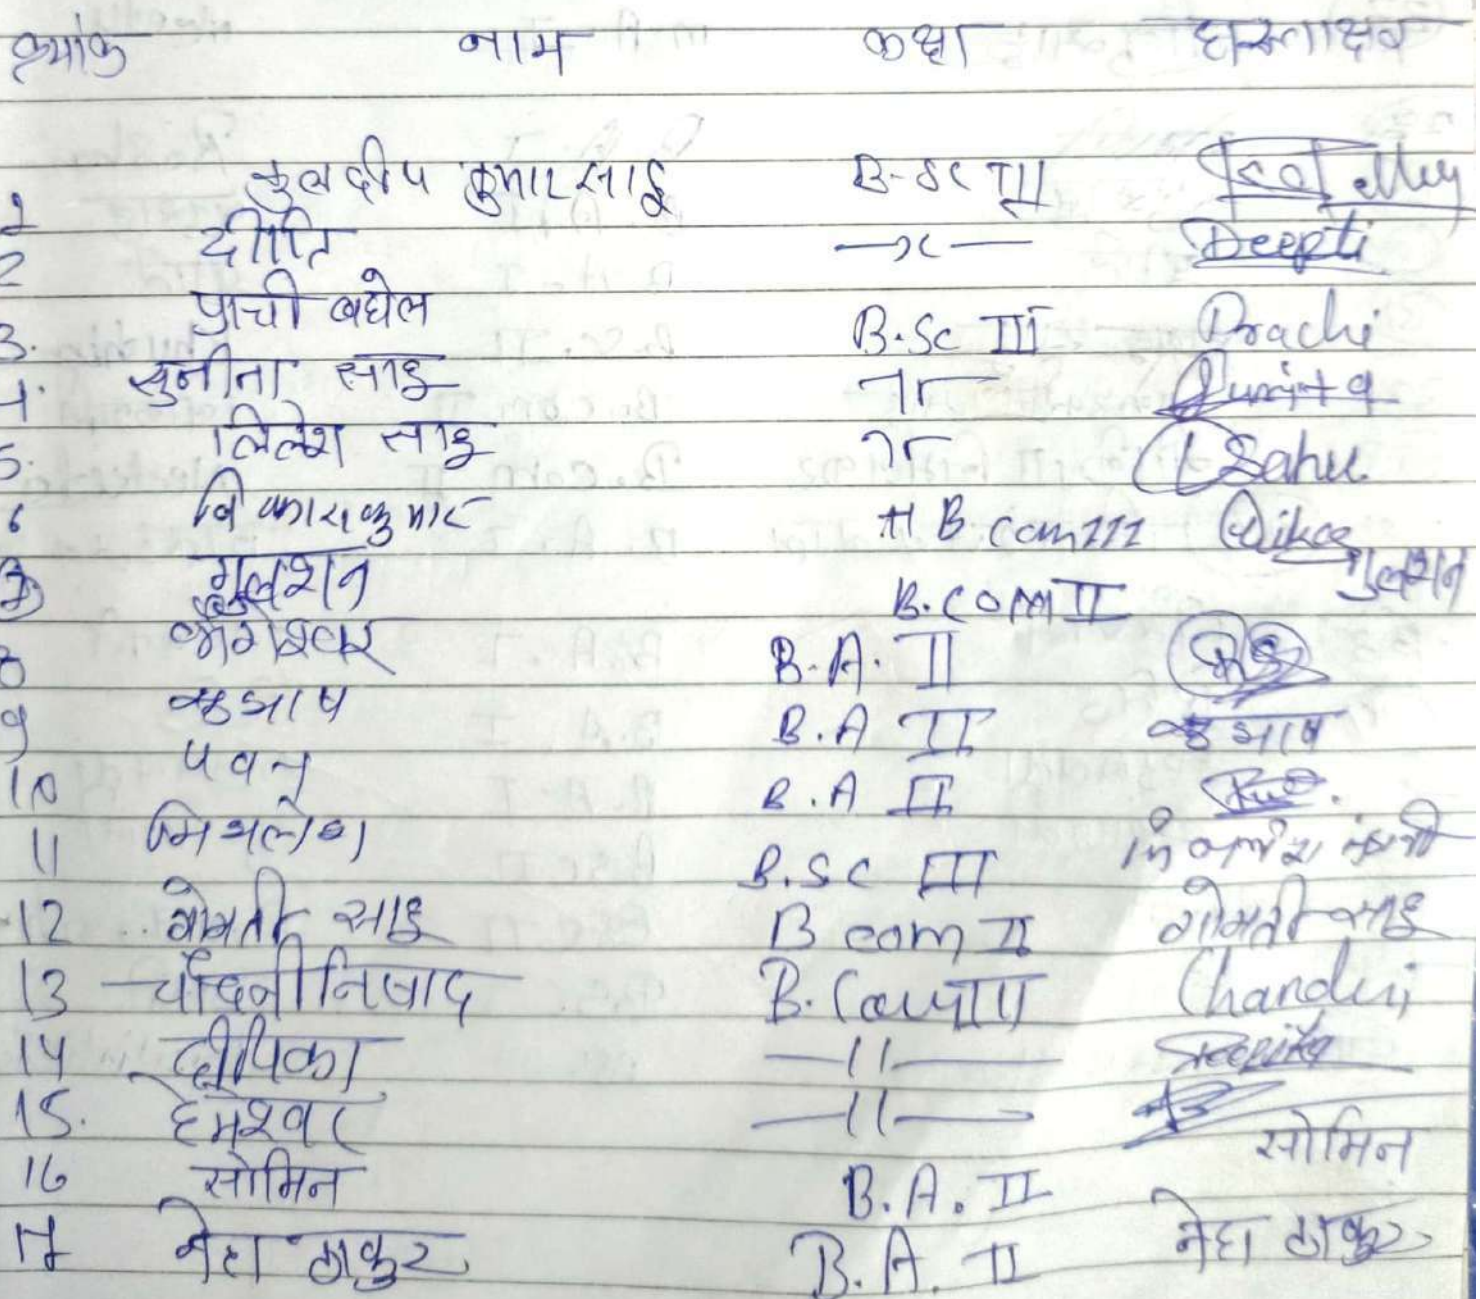 क्रमांक नाम कक्षा हस्ताक्षर
1 कुलदीप कुमार साहू B-Sc III
2 दीप्ति —x— Deepti
3. प्राची बघेल B.Sc III Prachi
4. सुनीता साहू 7r Sunita
5. लिलेश साहू 7r LSahu
6 विकास कुमार B com III Vikas
7 गुलशन B.com II गुलशन
8 B.A. II
9 B.A II
10 पवन B.A II
11 मिथलेश B.Sc III
12 गोमती साहू B com II गोमती साहू
13 चाँदनी निषाद B.Com III Chandni
14 दीपिका —11— Deepika
15. हेमेश्वर —11—
16 सोमिन B.A. II सोमिन
17 नेहा ठाकुर B.A. II नेहा ठाकुर